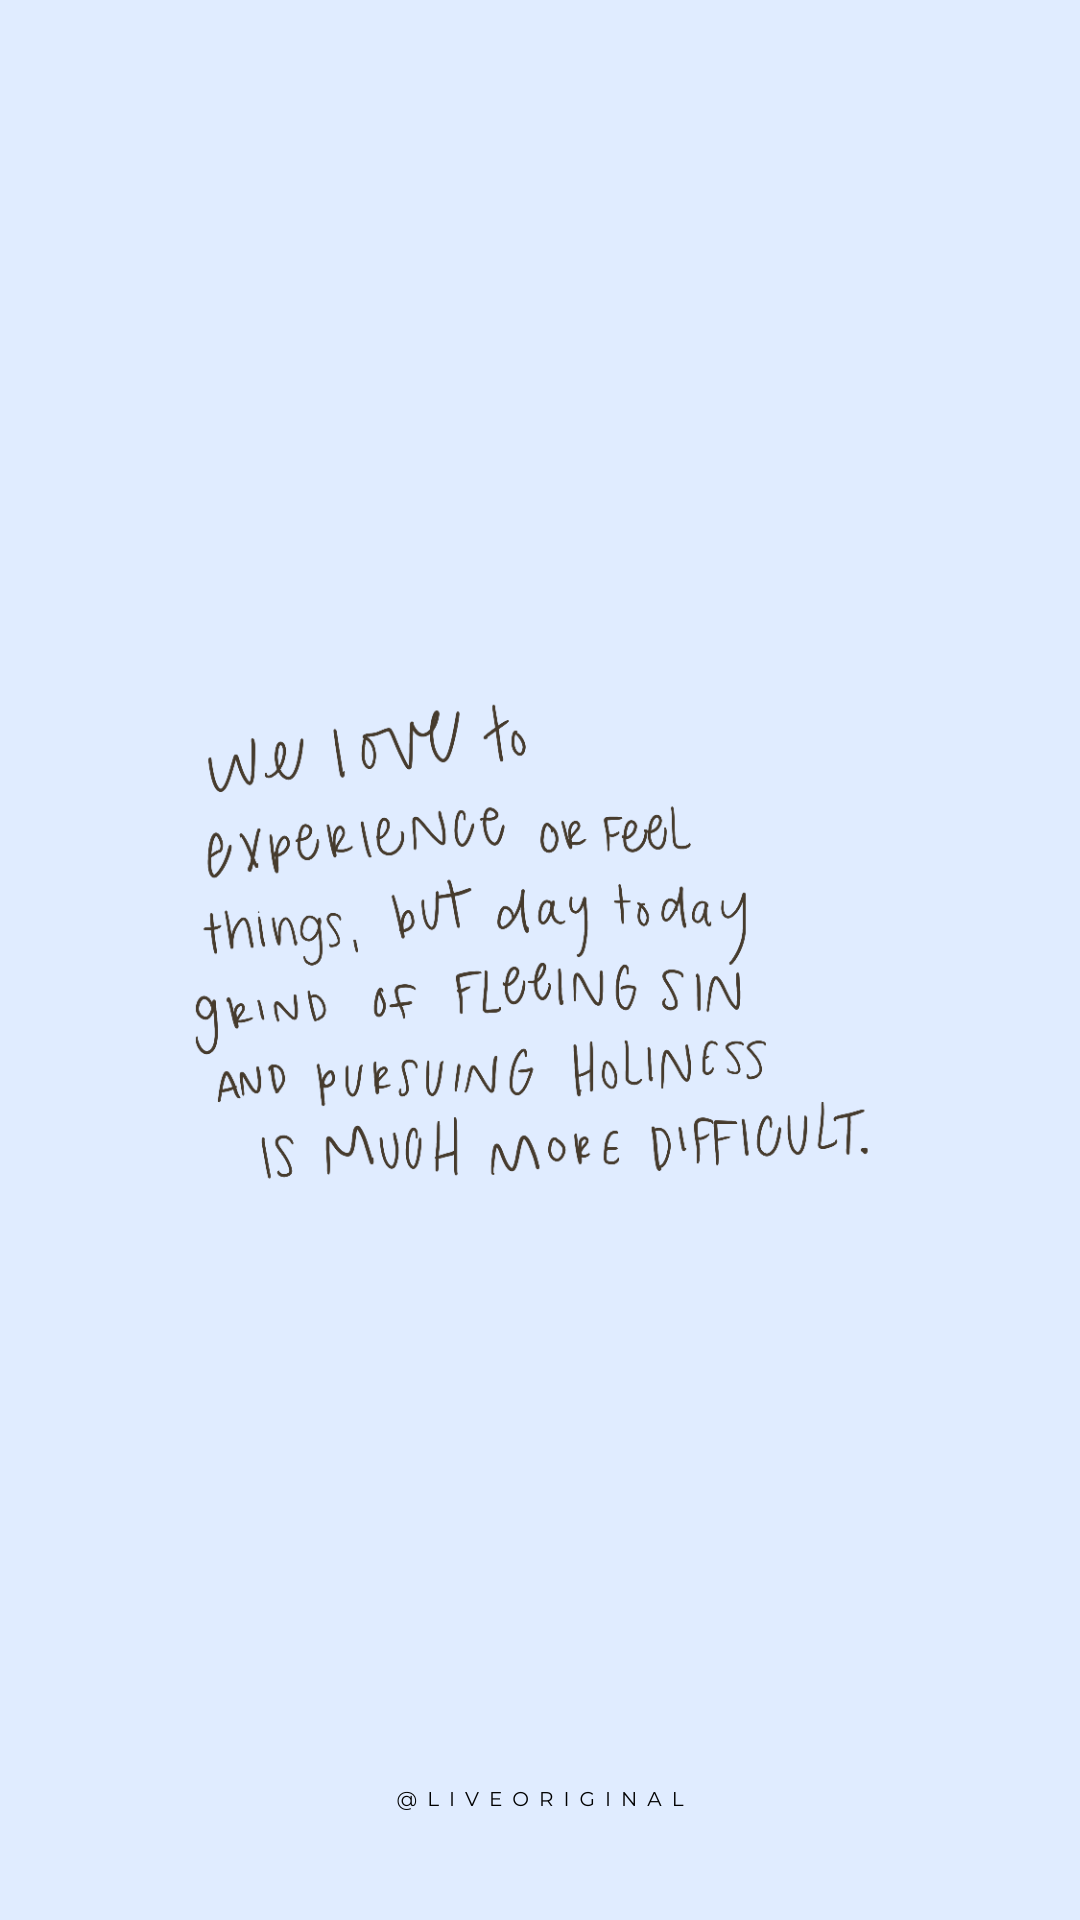 we love to
experience or feel
things, but day to day
grind of FLeeING SIN
AND pursuING HOLINESS
IS MUCH MORE DIFFICULT.
@LIVEORIGINAL